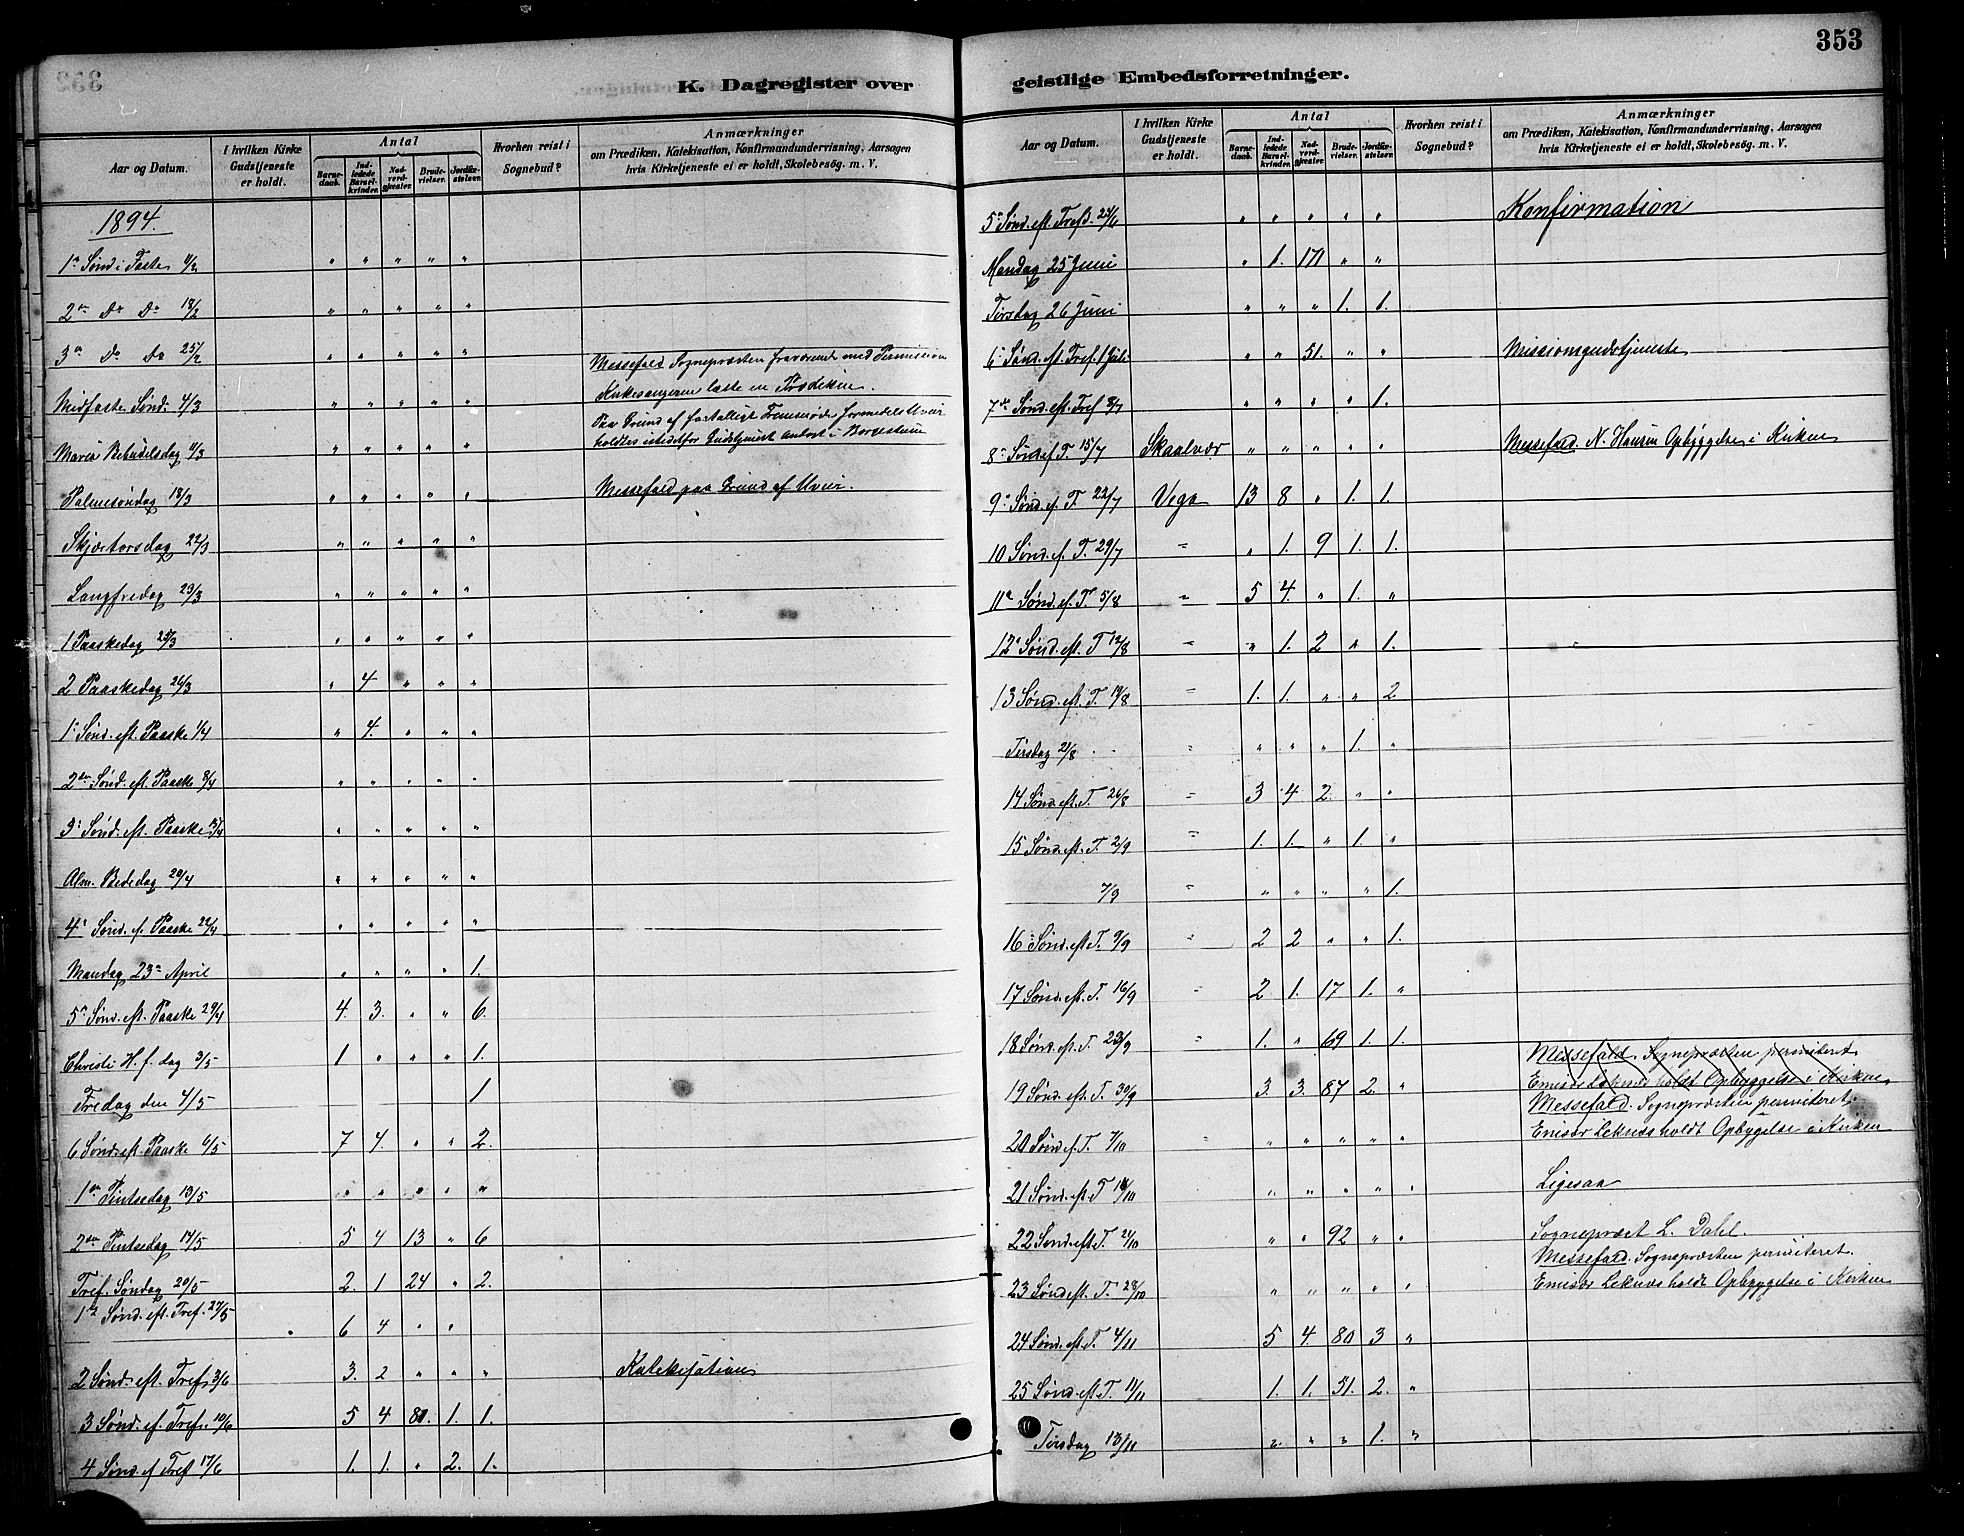 353
K. Dagregister over
geistlige Embedsforretninger.
Aar og Datum.
I hvilken Kirke Gudstjeneste er holdt.
Antal
Barne-daab.
Ind-ledede Barsel-kvinder.
Nad-verd-gjester.
Brude-vielser.
Jordfæ-stelser.
Hvorhen reist i Sognebud?
Anmærkninger
om Prædiken, Katekisation, Konfirmandundervisning, Aarsagen
hvis Kirketjeneste ei er holdt, Skolebesøg. m. V.
1894.
1ste Sønd i Faste 11/2 " " " " "
2den Do Do 18/2 " " " " "
3die Do Do 25/2 " " " " "
Messefald Sognepræsten fraværende med Permission
Kirkesangeren læste en Prædiken.
Midfaste Sønd. 4/3 " " " " "
Paa Grund af faatalligt Fremmøde formedelst Uveir
holdtes istedetfor Gudstjenest Andagt i
Mariæ Bebudelsdag 11/3 " " " " "
Palmesøndag 18/3 " " " " " Messefald paa Grund af Uveir.
Skjærtorsdag 22/3 " " " " "
Langfredag 23/3 " " " " "
1 Paaskedag 25/3 " " " " "
2 Paaskedag 26/3 " 4. " " "
1ste Sønd. eft. Paaske 1/4 " 4. " " "
2den Sønd. eft. Paaske 8/4 " " " " "
3die Sønd. eft. Paaske 15/4 " " " " "
Alm. Bededag 20/4 " " " " "
4de Sønd. ef. Paaske 22/4 " " " " "
Mandag 23de April " " " " 1.
5te Sønd. eft. Paaske 29/4 4. 3. " " 6.
Christi H. f. dag 3/5 1 " " " 1.
Fredag den 4/5 1
6 Sønd. eft. Paaske 6/5 7 4. " " 2.
1ste Pintsedag 13/5 " " " " "
2den Pintsedag 14/5 5 4 13 " 6
Tref. Søndag 20/5 2. 1 24 " 2.
1ste Sønd. eft. Tref. 27/5 6 4 " "
2 Sønd. eft. Tref. 3/6 3. 2 " " " Katekisation
3 Sønd. ef. Tref. 10/6 5 4 80. 1. 1.
4 Sønd. ef Tref 17/6 1. 1. " 2. 1.
Aar og Datum.
I hvilken Kirke Gudstjeneste er holdt.
Antal
Barne-daab.
Ind-ledede Barsel-kvinder.
Nad-verd-gjester.
Brude-vielser.
Jordfæ-stelser.
Hvorhen reist i Sognebud?
Anmærkninger
om Prædiken, Katekisation, Konfirmandundervisning, Aarsagen
hvis Kirketjeneste ei er holdt, Skolebesøg. m. V.
5te Sønd. eft. Tref. 24/6 " " " " " Konfirmation
Mandag 25 Juni " 1. 171 " "
Tirsdag 26 Juni " " " 1. 1.
6te Sønd. eft. Tref. 1 Juli " " 51. " " Missionsgudstjeneste
7de Sønd. eft. Tref 8/7 " " " " 1.
8de Sønd ef T. 15/7 Skaalvær " " " " " Messefald. N. Hansen Opbyggelse i Kirken
9de Sønd. ef. T. 22/7 Vega 13 8 " 1. 1.
10 Sønd. ef. T. 29/7 " " 1. 9 1. 1.
11te Sønd. ef. T. 5/8 " 5 4. " 1. "
12te Sønd. eft. T 12/8 " " 1. 2 " 1.
13 Sønd. eft. T. 19/8 " 1. 1. " " 2
Tirsdag 21/8 " " " " 1. "
14 Sønd. eft. T. 26/8 " 3 4 2. " "
15 Sønd. eft. T. 2/9 " 1. 1. " 1. "
7/9 " " " " " 1.
16 Sønd. eft T. 9/9 " 2 2 " " 1.
17 Sønd. eft. T. 16/9 " 2 1. 17 1. "
18 Sønd. eft. T. 23/9 " 1. " 69 1. 1.
Messefald. Sognepræsten permiteret.
Emisær Leknes holdt Opbyggelse i Kirken.
19 Sønd. eft. T. 30/9 3. 3. 87 2. "
Messefald. Sognepræsten permiteret.
Emisær Leknes holdt Opbygelse i Kirken
20 Sønd ef. T. 7/10 " " " " " "
21 Sønd. eft T 14/10 " " " " " Ligesaa
22 Sønd. eft T. 21/10 " " 92 " " Sognepræst L. Dahl.
Messefald. Sognepræsten permiteret.
23 Sønd eft. T. 28/10 " " " " " Emisær Leknes holdt Opbygelse i Kirken
24 Sønd. eft. T. 4/11 5 4. 80 3 "
25 Sønd. eft T. 11/11 1. 1. 51. 2. "
Tirsdag 13/11 " " " 1. "